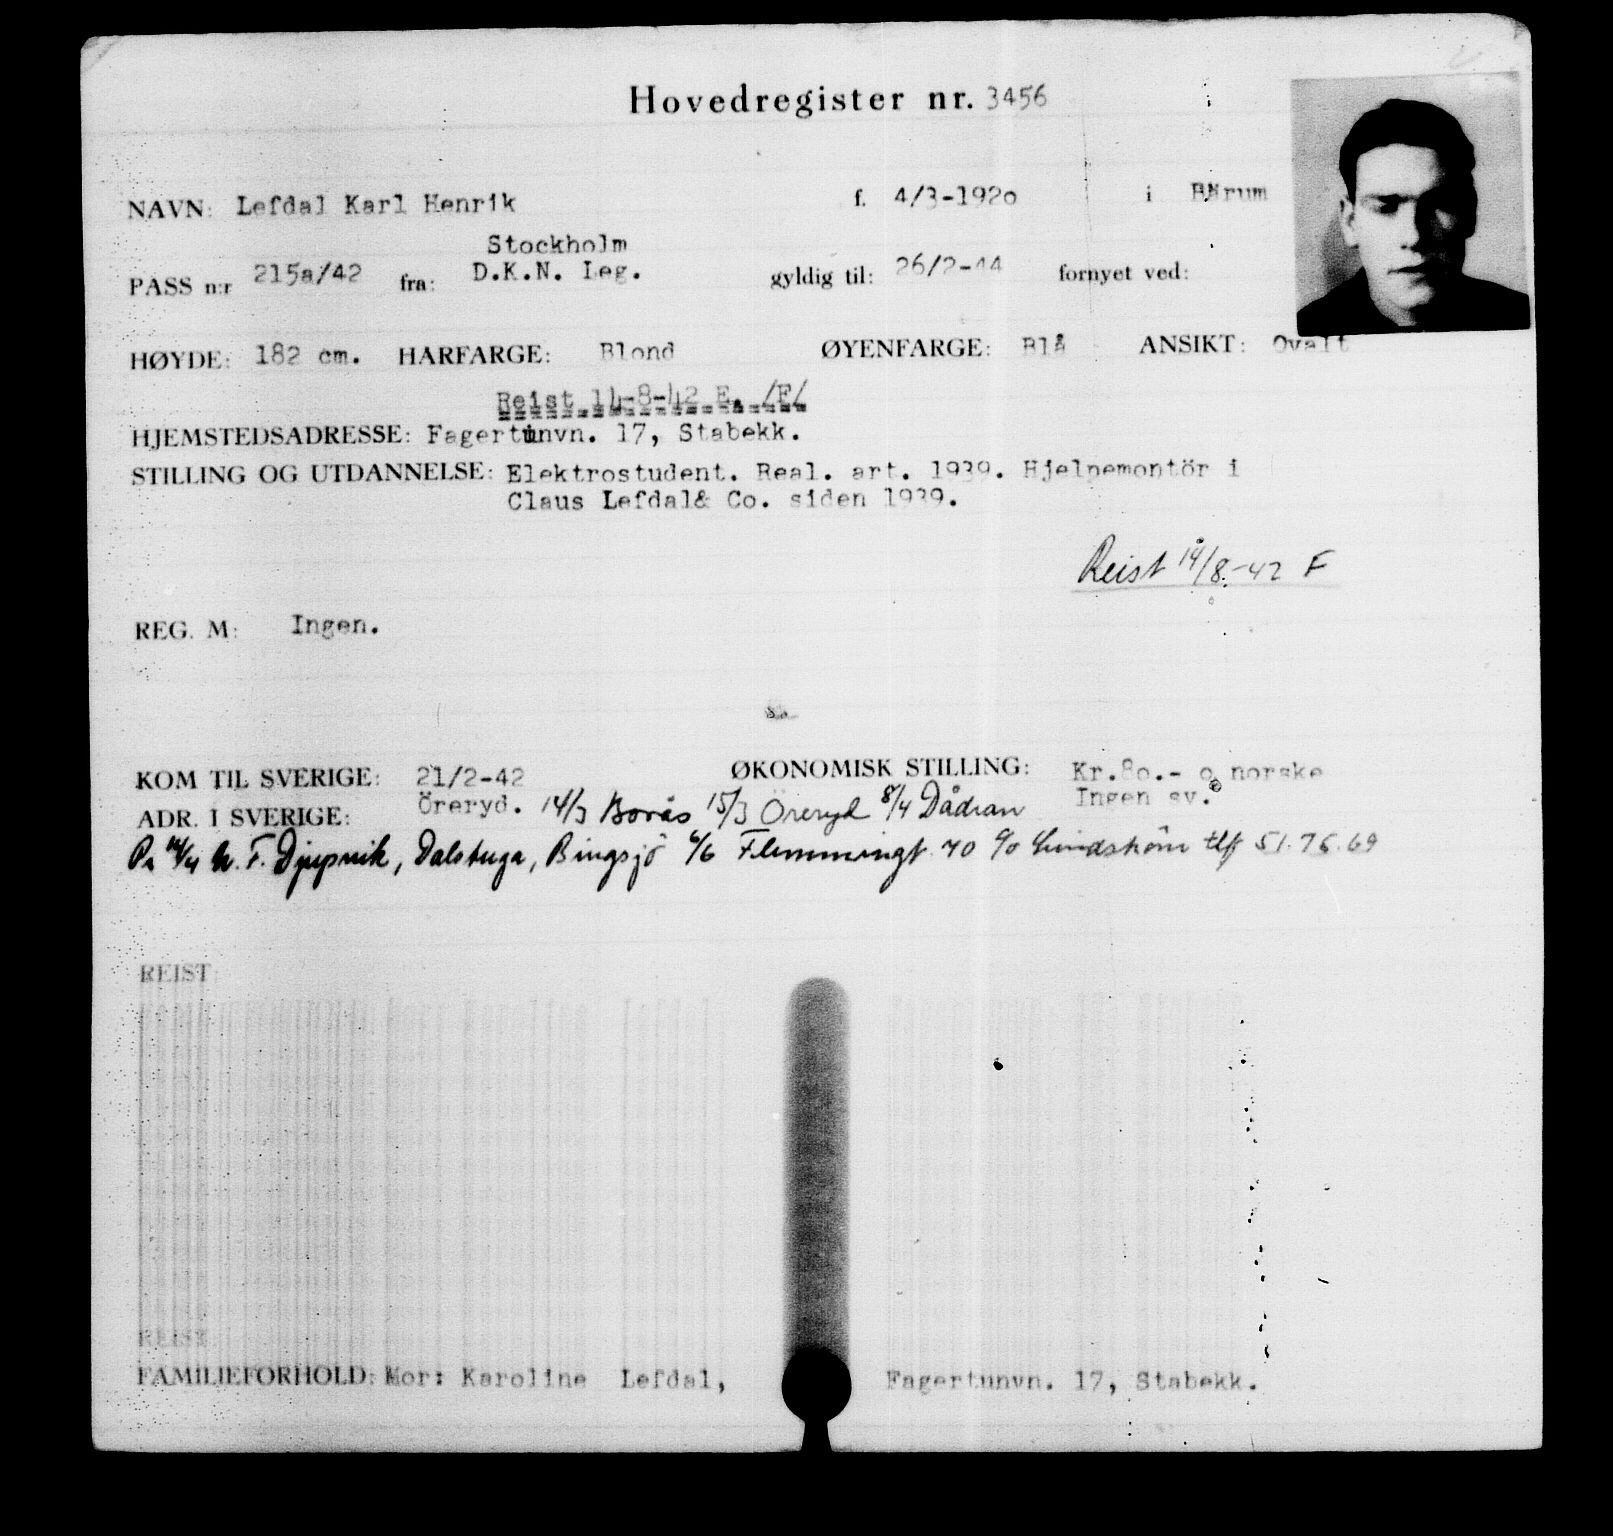 Hovedregister nr. 3456
NAVN: Lefdal Karl Henrik f. 4/3-1920 i Bærum
Stockholm
PASS n:r 215a/42 fra: D.K.N. Leg. gyldig til: 26/2-44 fornyet ved:
HØYDE: 182 cm. HARFARGE: Blond ØYENFARGE: Blå ANSIKT: Ovalt
Reist 14-8-42 E. /F/
HJEMSTEDSADRESSE: Fagertunvn. 17, Stabekk.
STILLING OG UTDANNELSE: Elektrostudent. Real. art. 1939. Hjelpemontör i
Claus Lefdal& Co. siden 1939.
Reist 14/8-42 F
REG. M: Ingen.
KOM TIL SVERIGE: 21/2-42 ØKONOMISK STILLING: Kr.80.- o norske
Ingen sv.
ADR. I SVERIGE: Öreryd. 14/3 Borås 15/3 Öreryd 8/4 Dådran
14/4 N. F. Djupsvik, Dalstuga, Bingsjö 6/6 Flemmingt. 40 c/o Lindström tlf 51.76.69
REIST:
REIST
FAMILIEFORHOLD: Mor: Karoline Lefdal, Fagertunvn. 17, Stabekk.